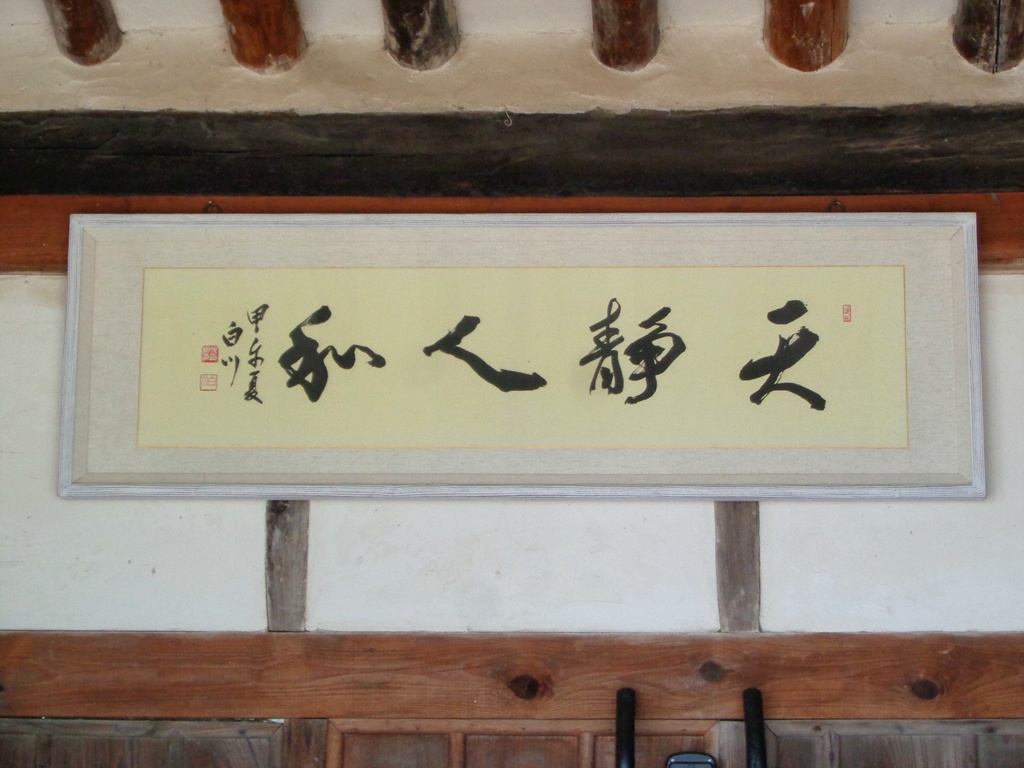 天靜人和
甲午夏
白川